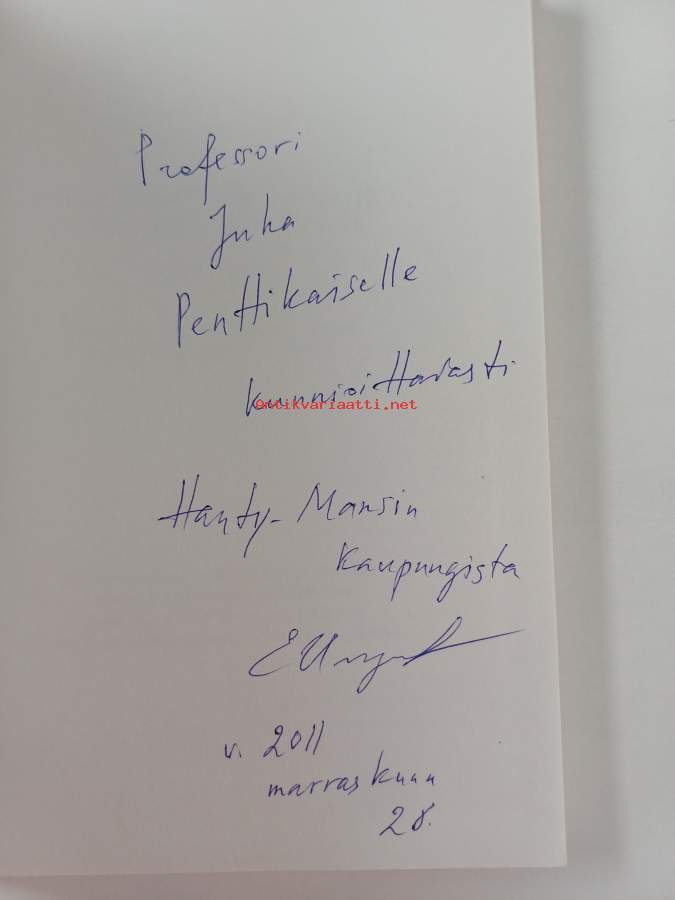 Professori
Juha
Penttikaiselle
kunnioittavasti
antikvariaatti.net
Hanty-Mansin
kaupungista
v. 2011
marraskuun
28.